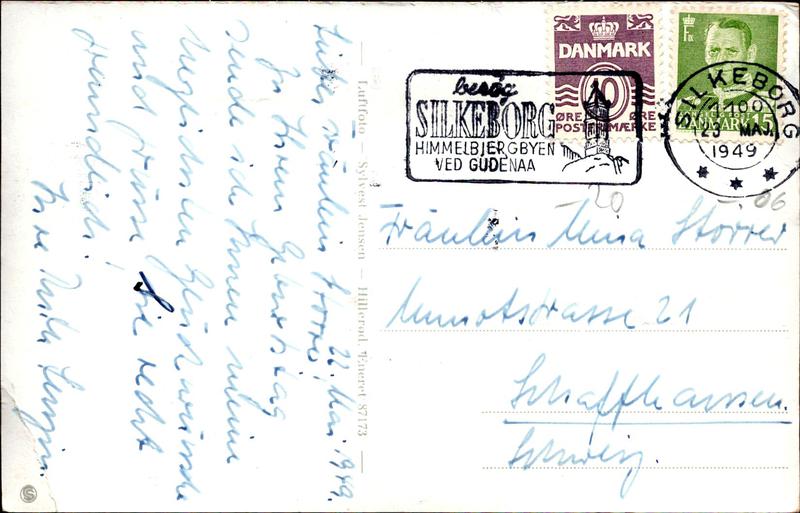 22. Mai 1949.
Liebes Fräulein Storrer!
Zu Ihrem Geburtstag
sende ich Ihnen meine
herzlichsten Glückwünsche
und grüsse Sie recht
freundlich!
Ihre
Luftfoto — Sylvest Jensen — Hillerød. Eneret 87173
besøg
SILKEBORG
HIMMELBJERGBYEN
VED GUDENAA
DANMARK
10
ØRE ØRE
POSTFRIMÆRKE
SILKEBORG
23 MAJ.
1949
15
20
06
Fräulein Anna Storrer
Munotstrasse 21
Schaffhausen.
Schweiz.